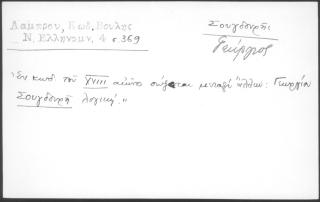 Λάμπρου, Κωδ. Βουλῆς
Ν. Ἑλληνομν. 4 σ 369
Σουγδουρῆς
Γεώργιος
Ἐν κωδ τοῦ XVIII αἰῶνο σώζεται μεταξὺ ἄλλων: Γεωργίου
Σουγδουρῆ λογική."